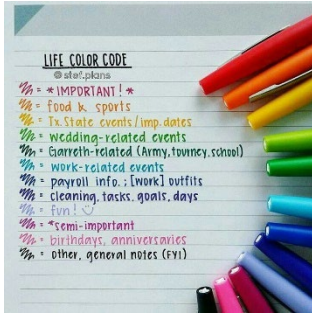 LIFE COLOR CODE
@stef.plans
= *IMPORTANT! *
= food & sports
= Tx.State events/imp.dates
= wedding-related events
= Garreth-related (Army,tourney,school)
= work-related events
= payroll info.; [work] outfits
= cleaning, tasks, goals, days
= fun!
= *semi-important
= birthdays, anniversaries
= other, general notes (FYI)